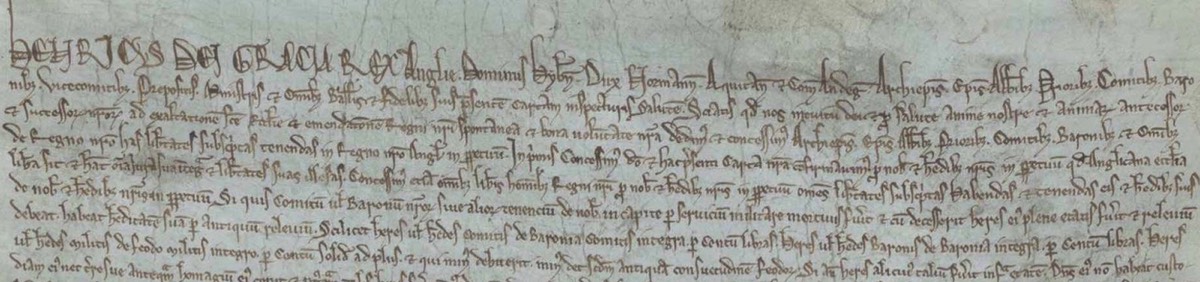 HENRICUS DEI GRACIA REX Anglie. Dominus Hybn. Dux Normann. Aquitan. & Com Andeg. Archiepis. Epis. Abbibz. Prioribz. Comitibz. Baro
nibz. Vicecomitibz. Prepositis. Ministris & omibz Ballivis & fidelibz suis psentem Cartam inspecturis Saltem. Sciatis qd nos intuitu dei & p salute anime nostre & animarum antecessor
& successor nror. ad exaltationem scte Ecclie & emendatonem Regni nri spontanea & bona voluntate nra dedimus & concessimus Archiepis. Epis. Abbibz. Prioribz. Comitibz. Baronibz. & omibz
de Regno nro has libtates subscptas tenendas in Regno nro Angl in ppetuum. In pimis Concessim do & hac psenti Carta nra confirmavim p nob & hedibz nris in ppetuum qd Anglicana ecclia
libera sit & heat omia jura sua integra & libtates suas illesas. Concessim etiam omibz libis hominibz Regni nri p nob & hedibz nris in ppetuum omes libtates subscptas habendas & tenendas eis & hedibz suis
de nob & hedibz nris in ppetuum. Si quis Comitum vl Baronum nror sive alior tenencium de nob in capite p servicium militare mortuus fuit & cum decesserit heres ei plene etatis fuit & relevium
debeat. habeat hereditatem suam p antiquum relevium. Scilicet heres vl hedes comitis de Baronia Comitis integra p Centum libras. Heres vl hedes Baronis de Baronia integra. p Centum libras. Heres
vl hedes militis de feodo militis integro p Centum solid ad plus. & qui min debuerit. min det scdm antiquam consuetudinem feodor. Si aut heres alicui talium fuit infra etatem. Dns ei non habeat custo
diam ei nec terre sue antequam homagium ei